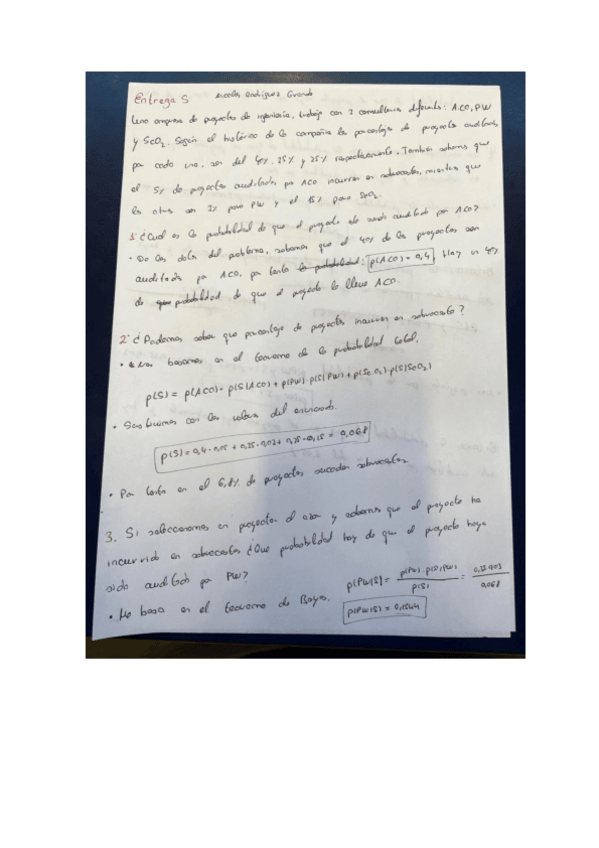 Entrega 5 Nicolás Rodríguez Grande
Una empresa de proyectos de ingeniería, trabaja con 3 consultorías diferentes: ACO, PW
y SeO2. Según el histórico de la compañía los porcentajes de proyectos auditados
por cada una, son del 40%, 35% y 25% respectivamente. También sabemos que
el 5% de proyectos auditados por ACO incurren en sobrecostes, mientras que
los otros son 3% para PW y el 15% para SeO2.
1. ¿Cuál es la probabilidad de que el proyecto sea auditado por ACO?
• De los datos del problema, sabemos que el 40% de los proyectos son
auditados por ACO, por tanto la probabilidad: p(ACO) = 0,4 Hay un 40%
de probabilidad de que el proyecto lo lleve ACO.
2. ¿Podemos saber que porcentaje de proyectos incurren en sobrecoste?
• Nos basamos en el teorema de la probabilidad total.
p(S) = p(ACO) · p(S|ACO) + p(PW) · p(S|PW) + p(SeO2) · p(S|SeO2)
• Sustituimos con los valores del enunciado.
p(S) = 0,4 · 0,05 + 0,35 · 0,03 + 0,25 · 0,15 = 0,068
• Por tanto en el 6,8% de proyectos suceden sobrecostes
3. Si seleccionamos un proyecto al azar y sabemos que el proyecto ha
incurrido en sobrecostes ¿Que probabilidad hay de que el proyecto haya
sido auditado por PW?
• Me baso en el teorema de Bayes. p(PW|S) = p(PW) · p(S|PW) / p(S) = 0,35 · 0,03 / 0,068
p(PW|S) = 0,1544